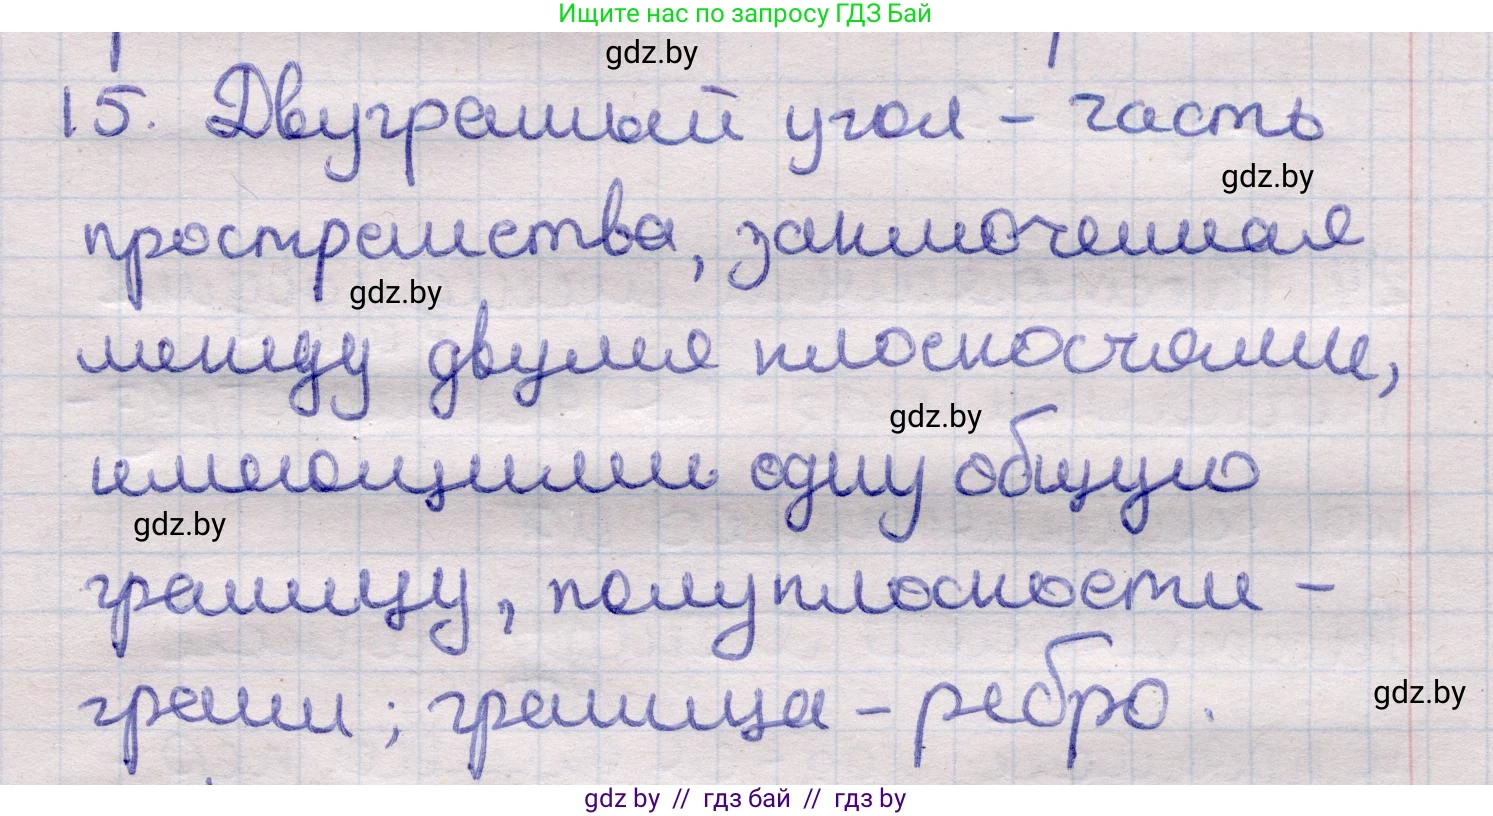 Ищите нас по запросу ГДЗ Бай
gdz.by
15. Двугранный угол – часть
gdz.by
пространства, заключенная
gdz.by
между двумя плоскостями,
gdz.by
имеющими одну общую
gdz.by
границу, полуплоскости –
грани; граница – ребро.
gdz.by
gdz by // гдз бай // гдз by